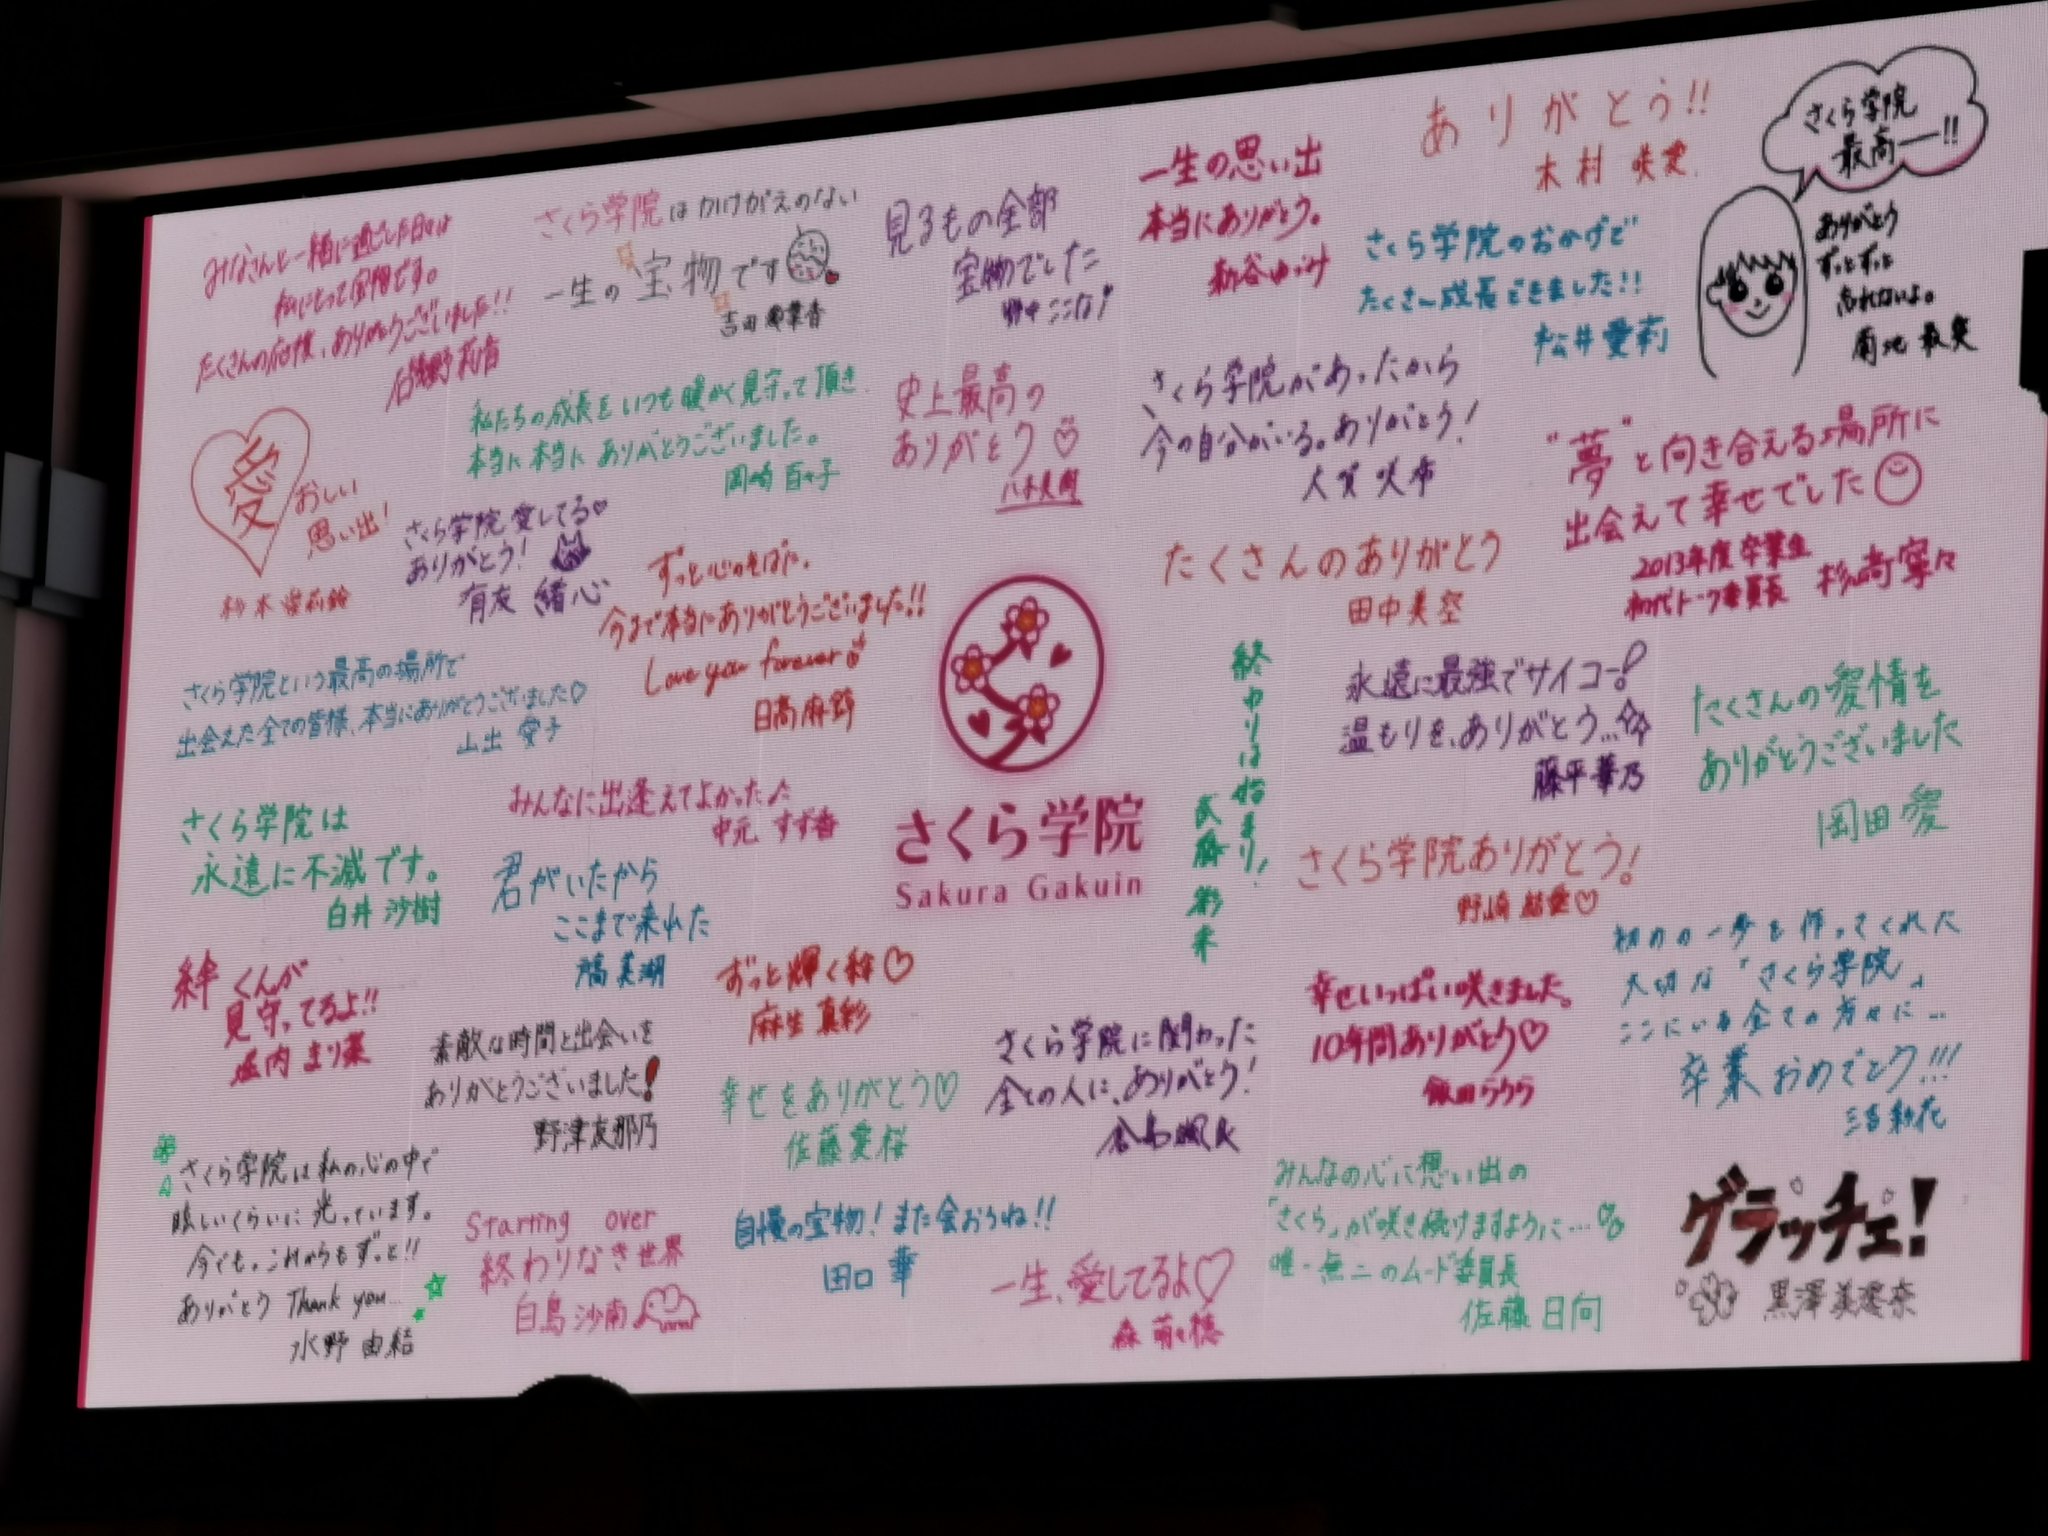 みなさんと一緒に過ごした日々は
私にとって宝物です。
たくさんの応援、ありがとうございました!!
浅野莉音
さくら学院はかけがえのない
一生の宝物です
吉田爽葉香
見るもの全部
宝物でした
野中ここな
一生の思い出
本当にありがとう。
新谷ゆづみ
ありがとう!!
木村咲愛
さくら学院
最高ー!!
ありがとう
ずっとずっと
忘れないよ。
菊地最愛
さくら学院のおかげで
たくさん成長できました!!
松井愛莉
愛おしい
思い出!
杉本愛莉鈴
私たちの成長をいつも暖かく見守って頂き
本当に本当にありがとうございました。
岡崎百々子
史上最高の
ありがとう♡
八木美樹
さくら学院があったから
今の自分がいる。ありがとう!
大賀咲希
"夢"と向き合える場所に
出会えて幸せでした
2013年度卒業生
初代トーク委員長 杉﨑寧々
さくら学院愛してる♡
ありがとう!
有友緒心
ずっと心のそばに。
今まで本当にありがとうございました!!
Love you forever
日髙麻鈴
たくさんのありがとう
田中美空
さくら学院という最高の場所で
出会えた全ての皆様、本当にありがとうございました♡
山出愛子
終わりは始まり!
武藤彩未
永遠に最強でサイコー!
温もりを、ありがとう…☆
藤平華乃
たくさんの愛情を
ありがとうございました
岡田愛
さくら学院は
永遠に不滅です。
白井沙樹
みんなに出逢えてよかった♪
中元すず香
さくら学院
Sakura Gakuin
君がいたから
ここまで来れた
八木美湖
さくら学院ありがとう!
野崎結愛♡
絆くんが
見守ってるよ!!
堀内まり菜
ずっと輝く絆♡
麻生真彩
初めの一歩を作ってくれた
大切な「さくら学院」
ここにいる全ての方々に…
卒業おめでとう!!!
三吉彩花
素敵な時間と出会いを
ありがとうございました!
野津友那乃
さくら学院に関わった
全ての人に、ありがとう!
倉島颯良
幸せいっぱい咲きました。
10年間ありがとう♡
飯田らうら
幸せをありがとう♡
佐藤愛桜
さくら学院は私の心の中で
眩しいくらいに光っています。
今でも。これからもずっと!!
ありがとう Thank you...
水野由結
Starting over
終わりなき世界
白鳥沙南
自慢の宝物!また会おうね!!
田口華
一生、愛してるよ♡
森萌々穂
みんなの心に想い出の
「さくら」が咲き続けますように…
唯一無二のムード委員長
佐藤日向
グラッチェ!
黒澤美澪奈